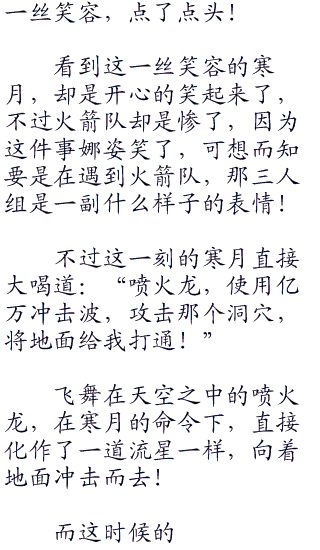 一丝笑容，点了点头！
看到这一丝笑容的寒
月，却是开心的笑起来了，
不过火箭队却是惨了，因为
这件事娜姿笑了，可想而知
要是在遇到火箭队，那三人
组是一副什么样子的表情！
不过这一刻的寒月直接
大喝道：“喷火龙，使用亿
万冲击波，攻击那个洞穴，
将地面给我打通！”
飞舞在天空之中的喷火
龙，在寒月的命令下，直接
化作了一道流星一样，向着
地面冲击而去！
而这时候的